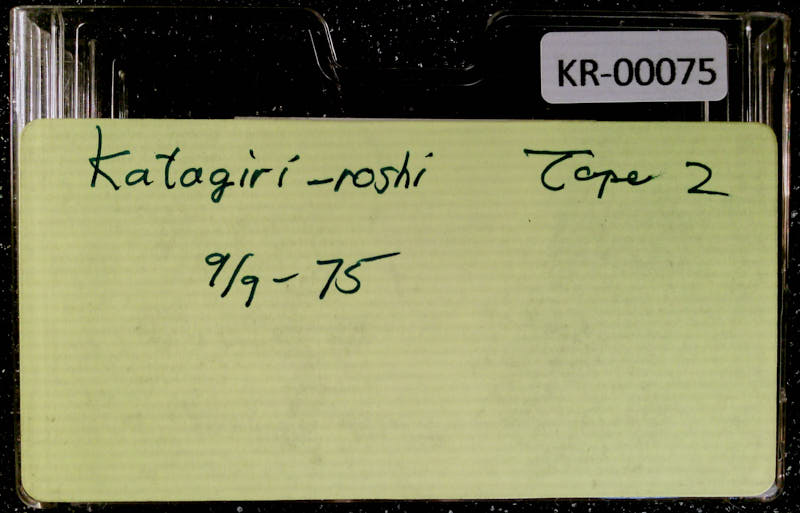 KR-00075
Katagiri-roshi Tape 2
9/9-75